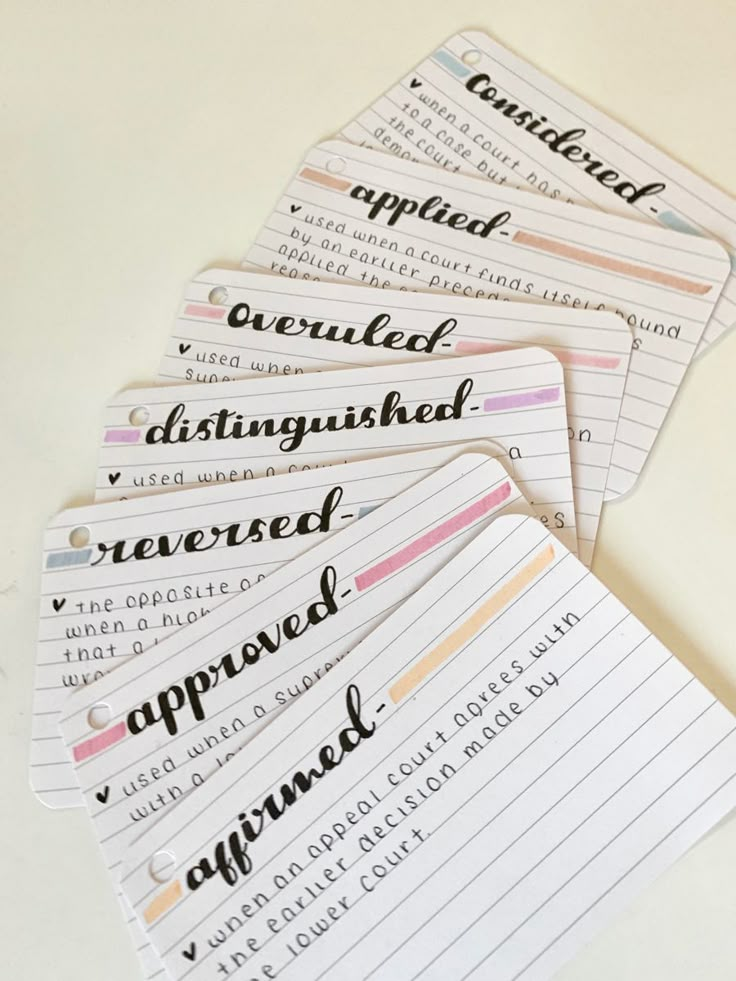 Considered-
when a court has
to a case but
the court
applied-
used when a court finds itself bound
by an earlier
applied the
Overuled-
used when
distinguished-
used when a
a
reversed-
the opposite
when a
that a
approved-
used when a
with a
affirmed-
when an appeal court agrees with
the earlier decision made by
lower court.